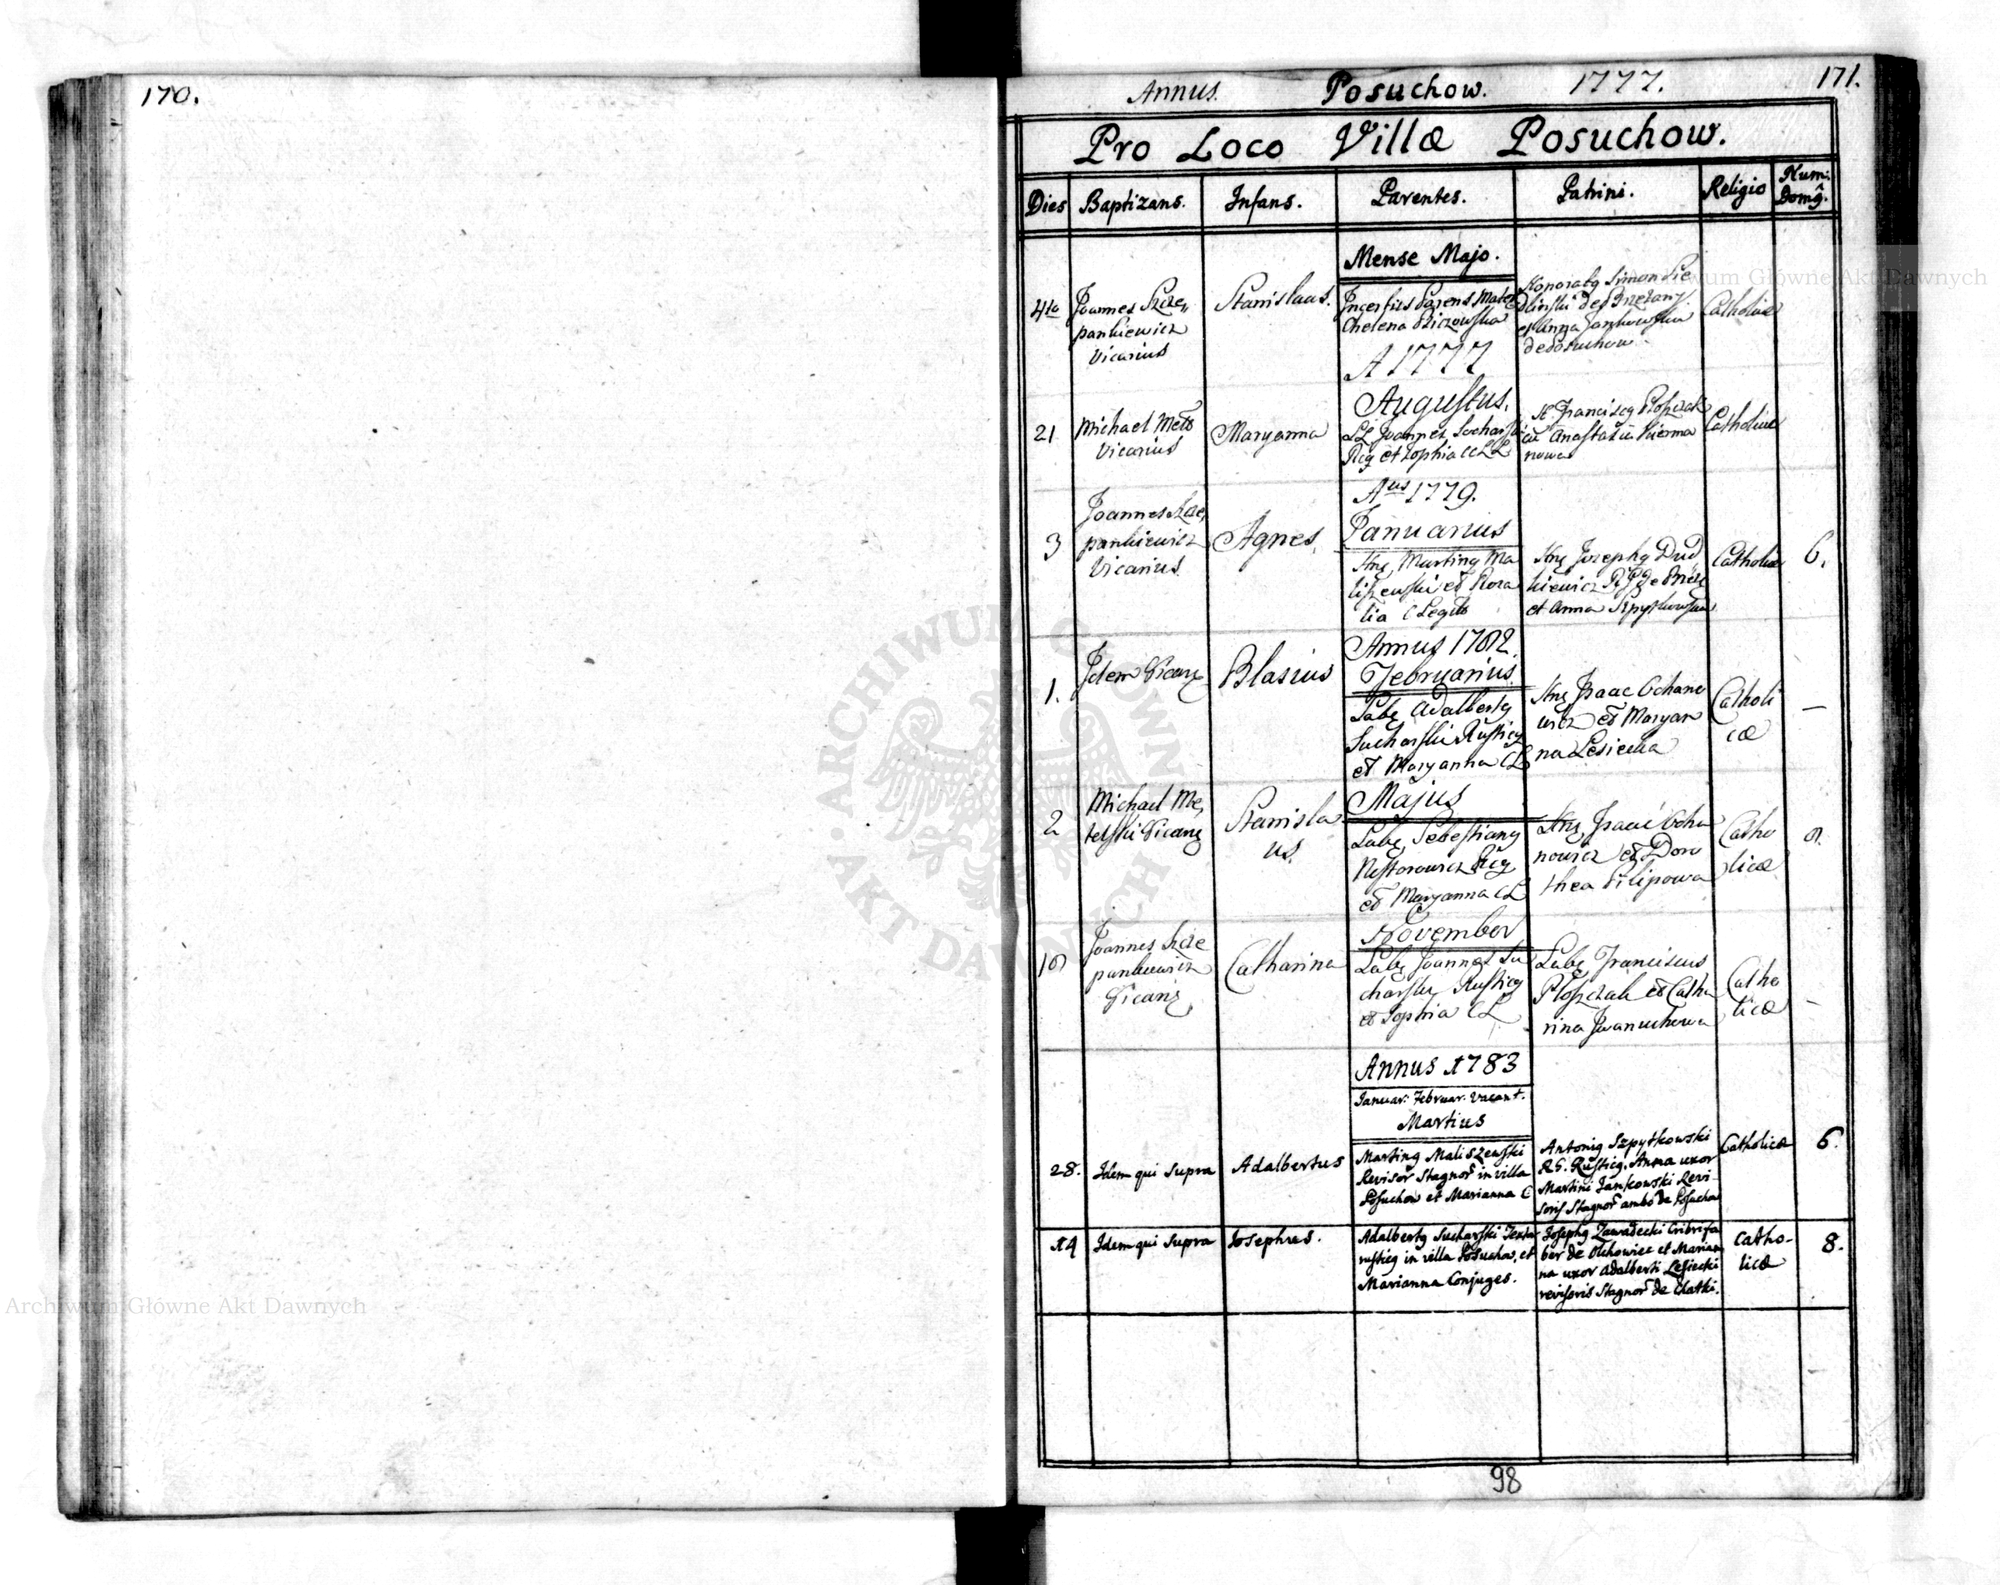 170.
Annus. Posuchow. 1777. 171.
Pro Loco Villæ Posuchow.
Dies Baptizans. Infans. Parentes. Patrini. Religio Num. Domq̃.
Mense Majo.
4to
Joannes Szcze„
pankiewicz
Vicarius
Stanislaus.
Incertus Parens Mater
Chelena
Honoratq Simon
et Anna Jankowska
de Posuchow
Catholicæ
A 1777
Augustus.
21
Michael Mets
Vicarius
Maryanna
LL Joannes Sucharski
et Sophia CC LL
Franciscq Ploszczak
Anastasia
nowa
Catholicæ
Aus 1779.
Januarius
3
Joannes Szcze„
pankiewicz
Vicarius
Agnes.
Martinq Ma
liszewski et Roza
lia C Legit
Josephq Dud
kiewicz
et Anna Szpytkowska
Catholicæ
6.
Annus 1782.
Februarius
1.
Idem Vicarq
Blasius
Labq Adalbertq
Sucharski Rusticq
et Maryanna CL
Isaac Ochano
wicz et Maryan
na Lesiecka
Catholi
cæ
–
Majus
2
Michael Me„
telski Vicarq
Stanisla
us.
Labq Sebestianq
Nestorowicz Rcq
et Maryanna CL
Isaac Ocha
nowicz et Doro
thea Filipowa
Catho
licæ
November
Joannes Szcze
pankiewicz
Vicariq
Catharina
Labq Joannes Su
charski Rusticq
et Sophia CL
Labq Franciscus
Ploszczak et Catha
rina Iwanuchowa
Catho
licæ
–
Annus 1783
Januar: Februar. vacant.
Martius
28.
Idem qui supra
Adalbertus
Martinq Maliszewski
Revisor Stagnor in villa
Posuchow et Marianna C
Antoniq Szpytkowski
R G. Rusticq. Anna uxor
Martini Jankowski Revi-
soris Stagnor ambo de Posucho
Catholicæ
6.
Idem qui supra
Josephus.
Adalbertq Sucharski Textor
rusticq in villa Posuchow, et
Marianna Conjuges.
Josephq Zawadecki Cribrifa
ber de Olchowiec et Marian
na uxor Adalberti Lesiecki
revisoris Stagnor de Chatki.
Catho-
licæ
8.
98
Archiwum Główne Akt Dawnych
Archiwum Główne Akt Dawnych
ARCHIWUM GŁÓWNE AKT DAWNYCH